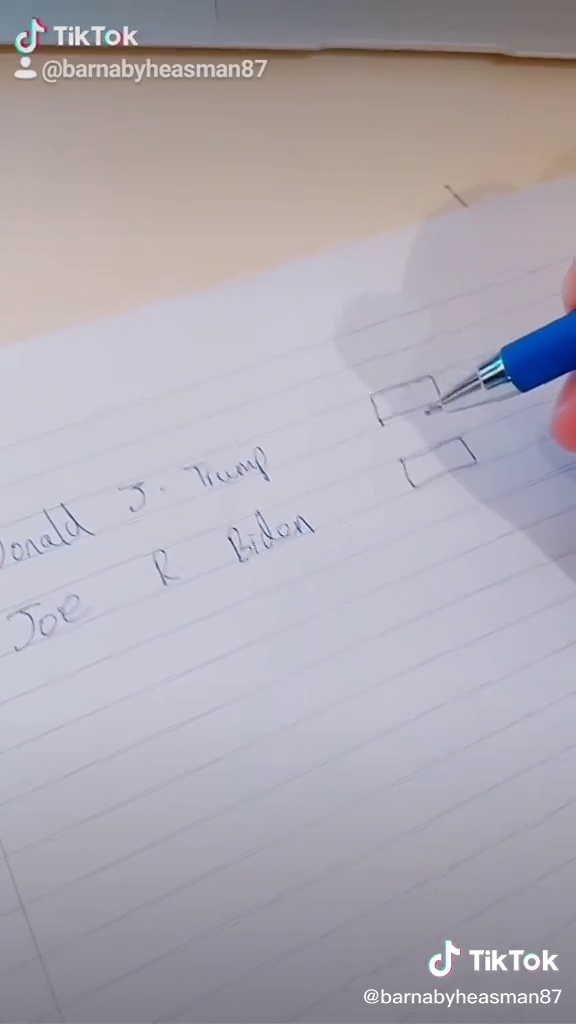 TikTok
@barnabyheasman87
Donald J. Trump
Joe R Biden
TikTok
@barnabyheasman87